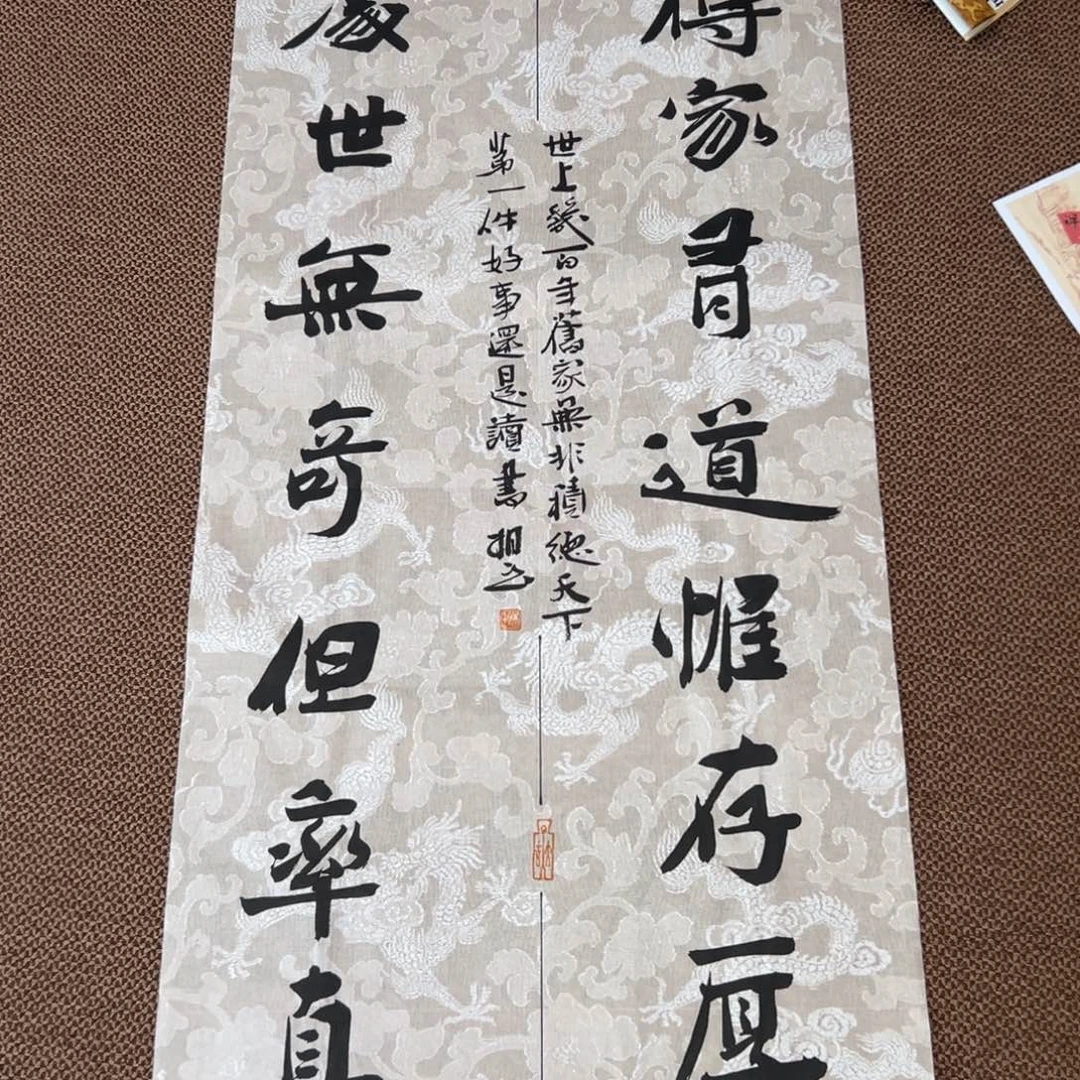 傳家有道惟存厚
世上幾百年舊家無非積德天下
第一件好事還是讀書
處世無奇但率真